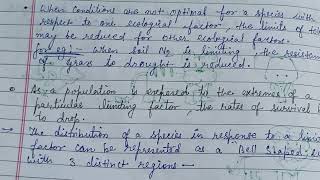 • When conditions are not optimal for a species with
respect to one ecological factor, the limits of
may be reduced for other ecological factors
for eg:- when soil N2 is limiting, the resistance
of grass to drought is reduced.
• As a population is exposed to the extremes of a
particular limiting factor, the rates of survival
to drop.
→ The distribution of a species in response to a
factor can be represented as a Bell Shaped
with 3 distinct regions —